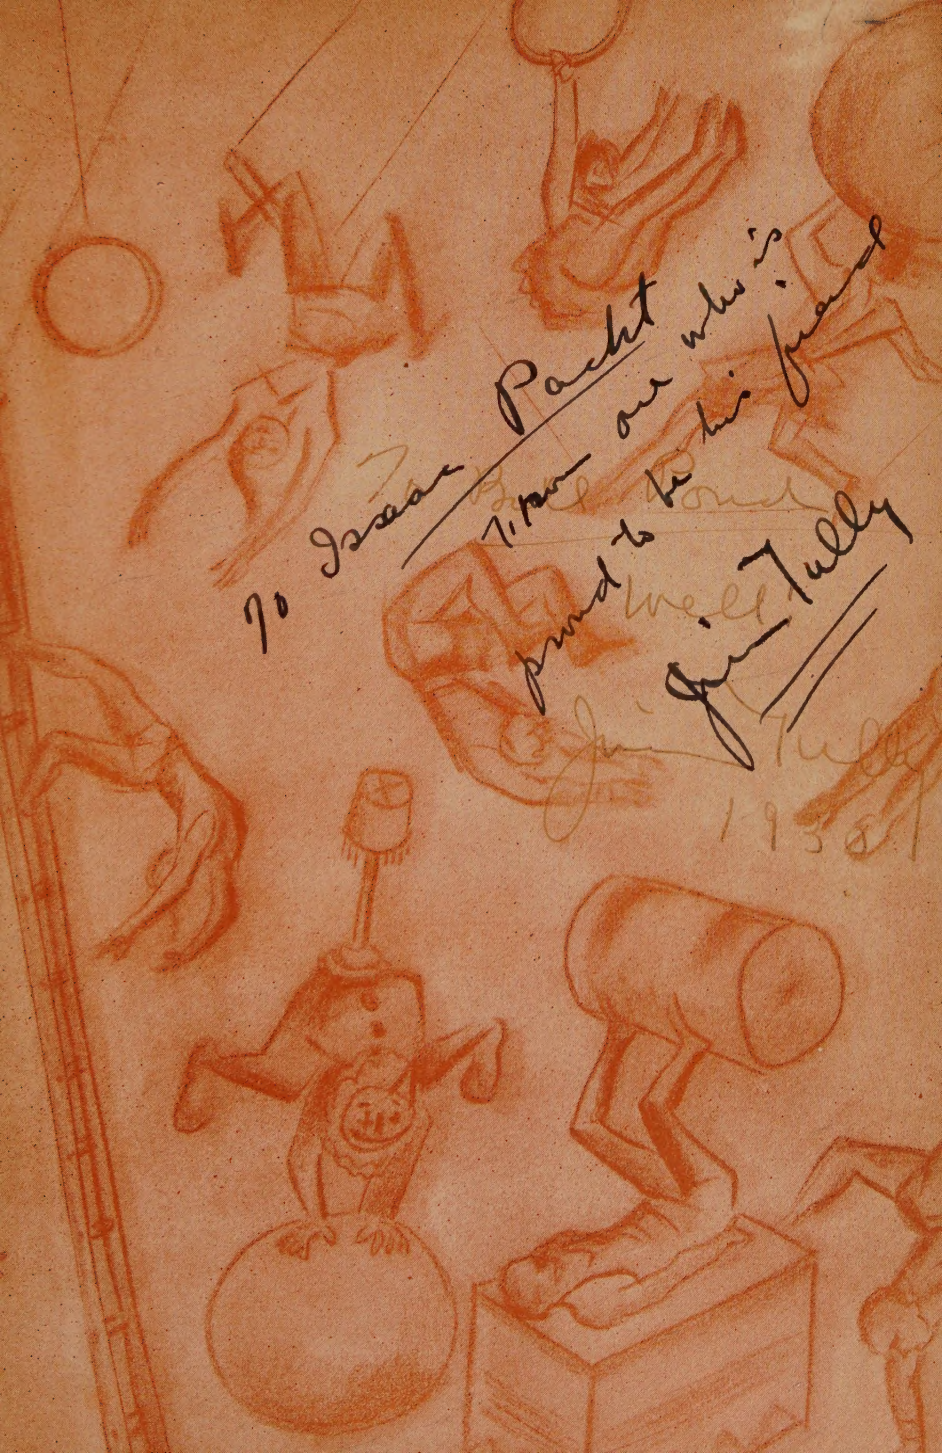 To Isaac Pacht
From one who is
proud to be his friend
Jim Tully
To Bill Pond
Well
Jim Tully